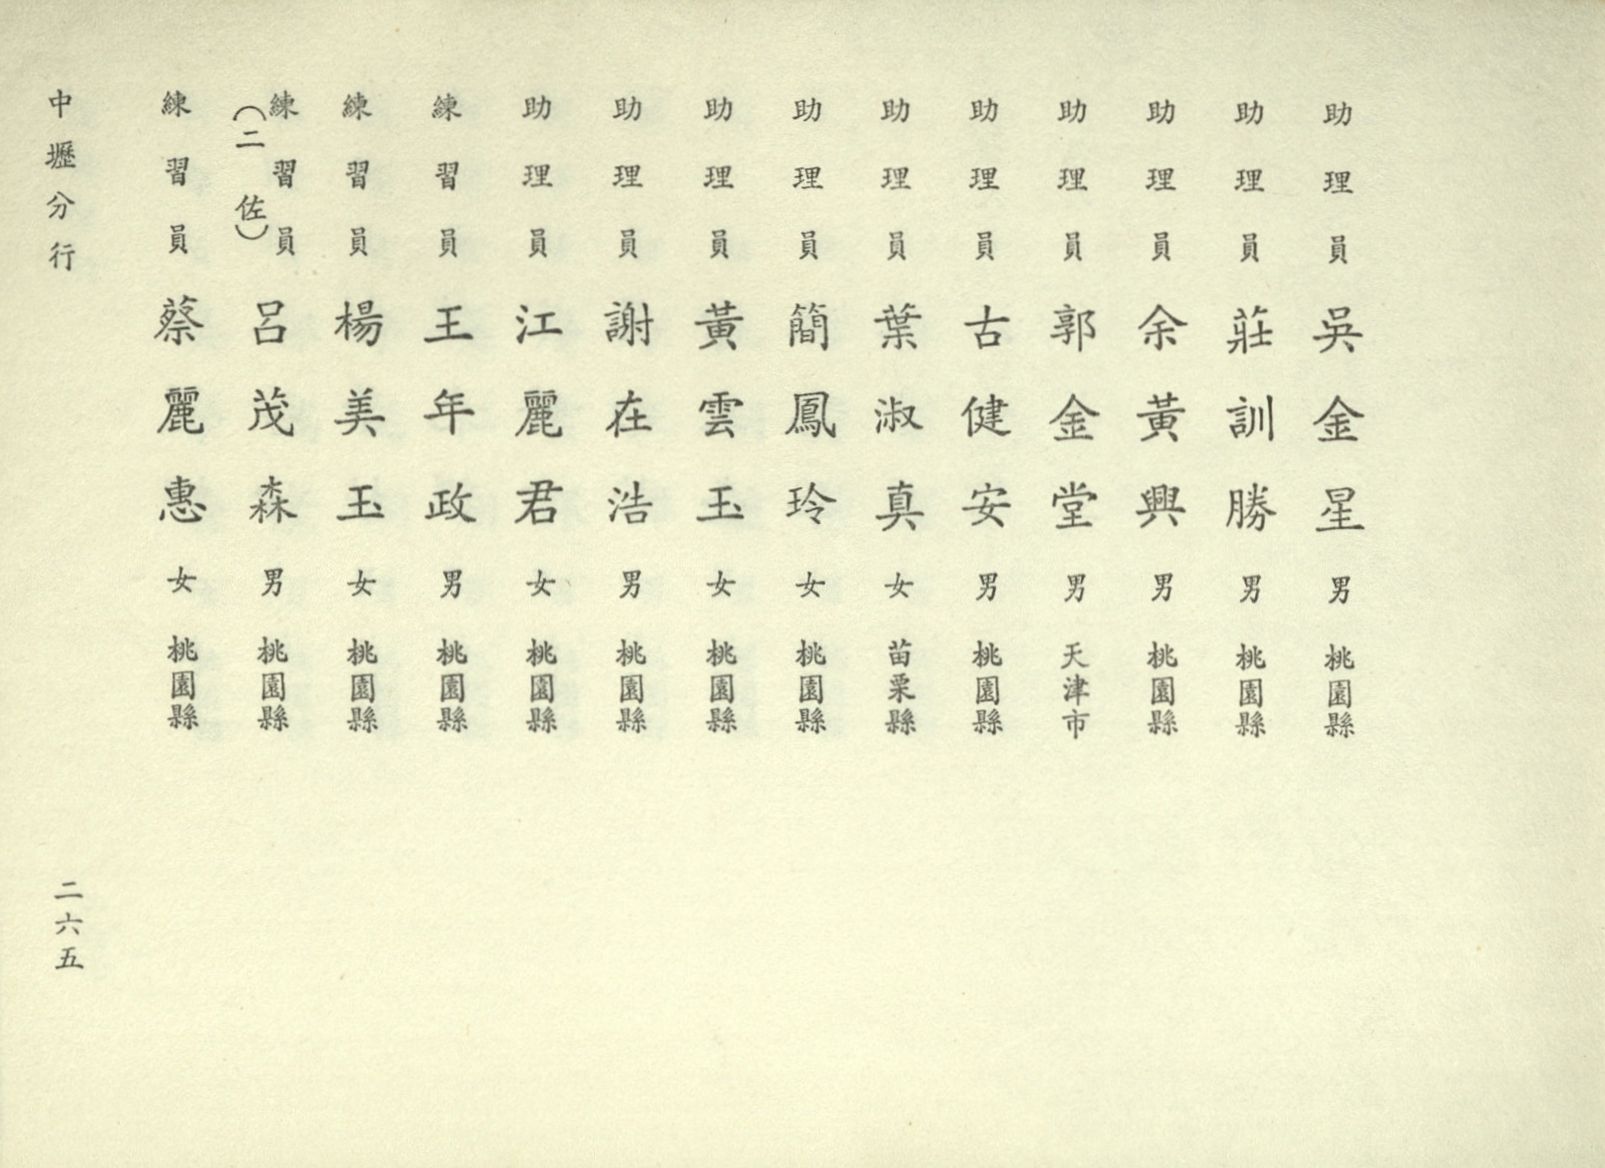 助理員 吳金星 男 桃園縣
助理員 莊訓勝 男 桃園縣
助理員 余黃興 男 桃園縣
助理員 郭金堂 男 天津市
助理員 古健安 男 桃園縣
助理員 葉淑真 女 苗栗縣
助理員 簡鳳玲 女 桃園縣
助理員 黃雲玉 女 桃園縣
助理員 謝在浩 男 桃園縣
助理員 江麗君 女 桃園縣
練習員 王年政 男 桃園縣
練習員 楊美玉 女 桃園縣
練習員(二佐) 呂茂森 男 桃園縣
練習員 蔡麗惠 女 桃園縣
中壢分行 二六五